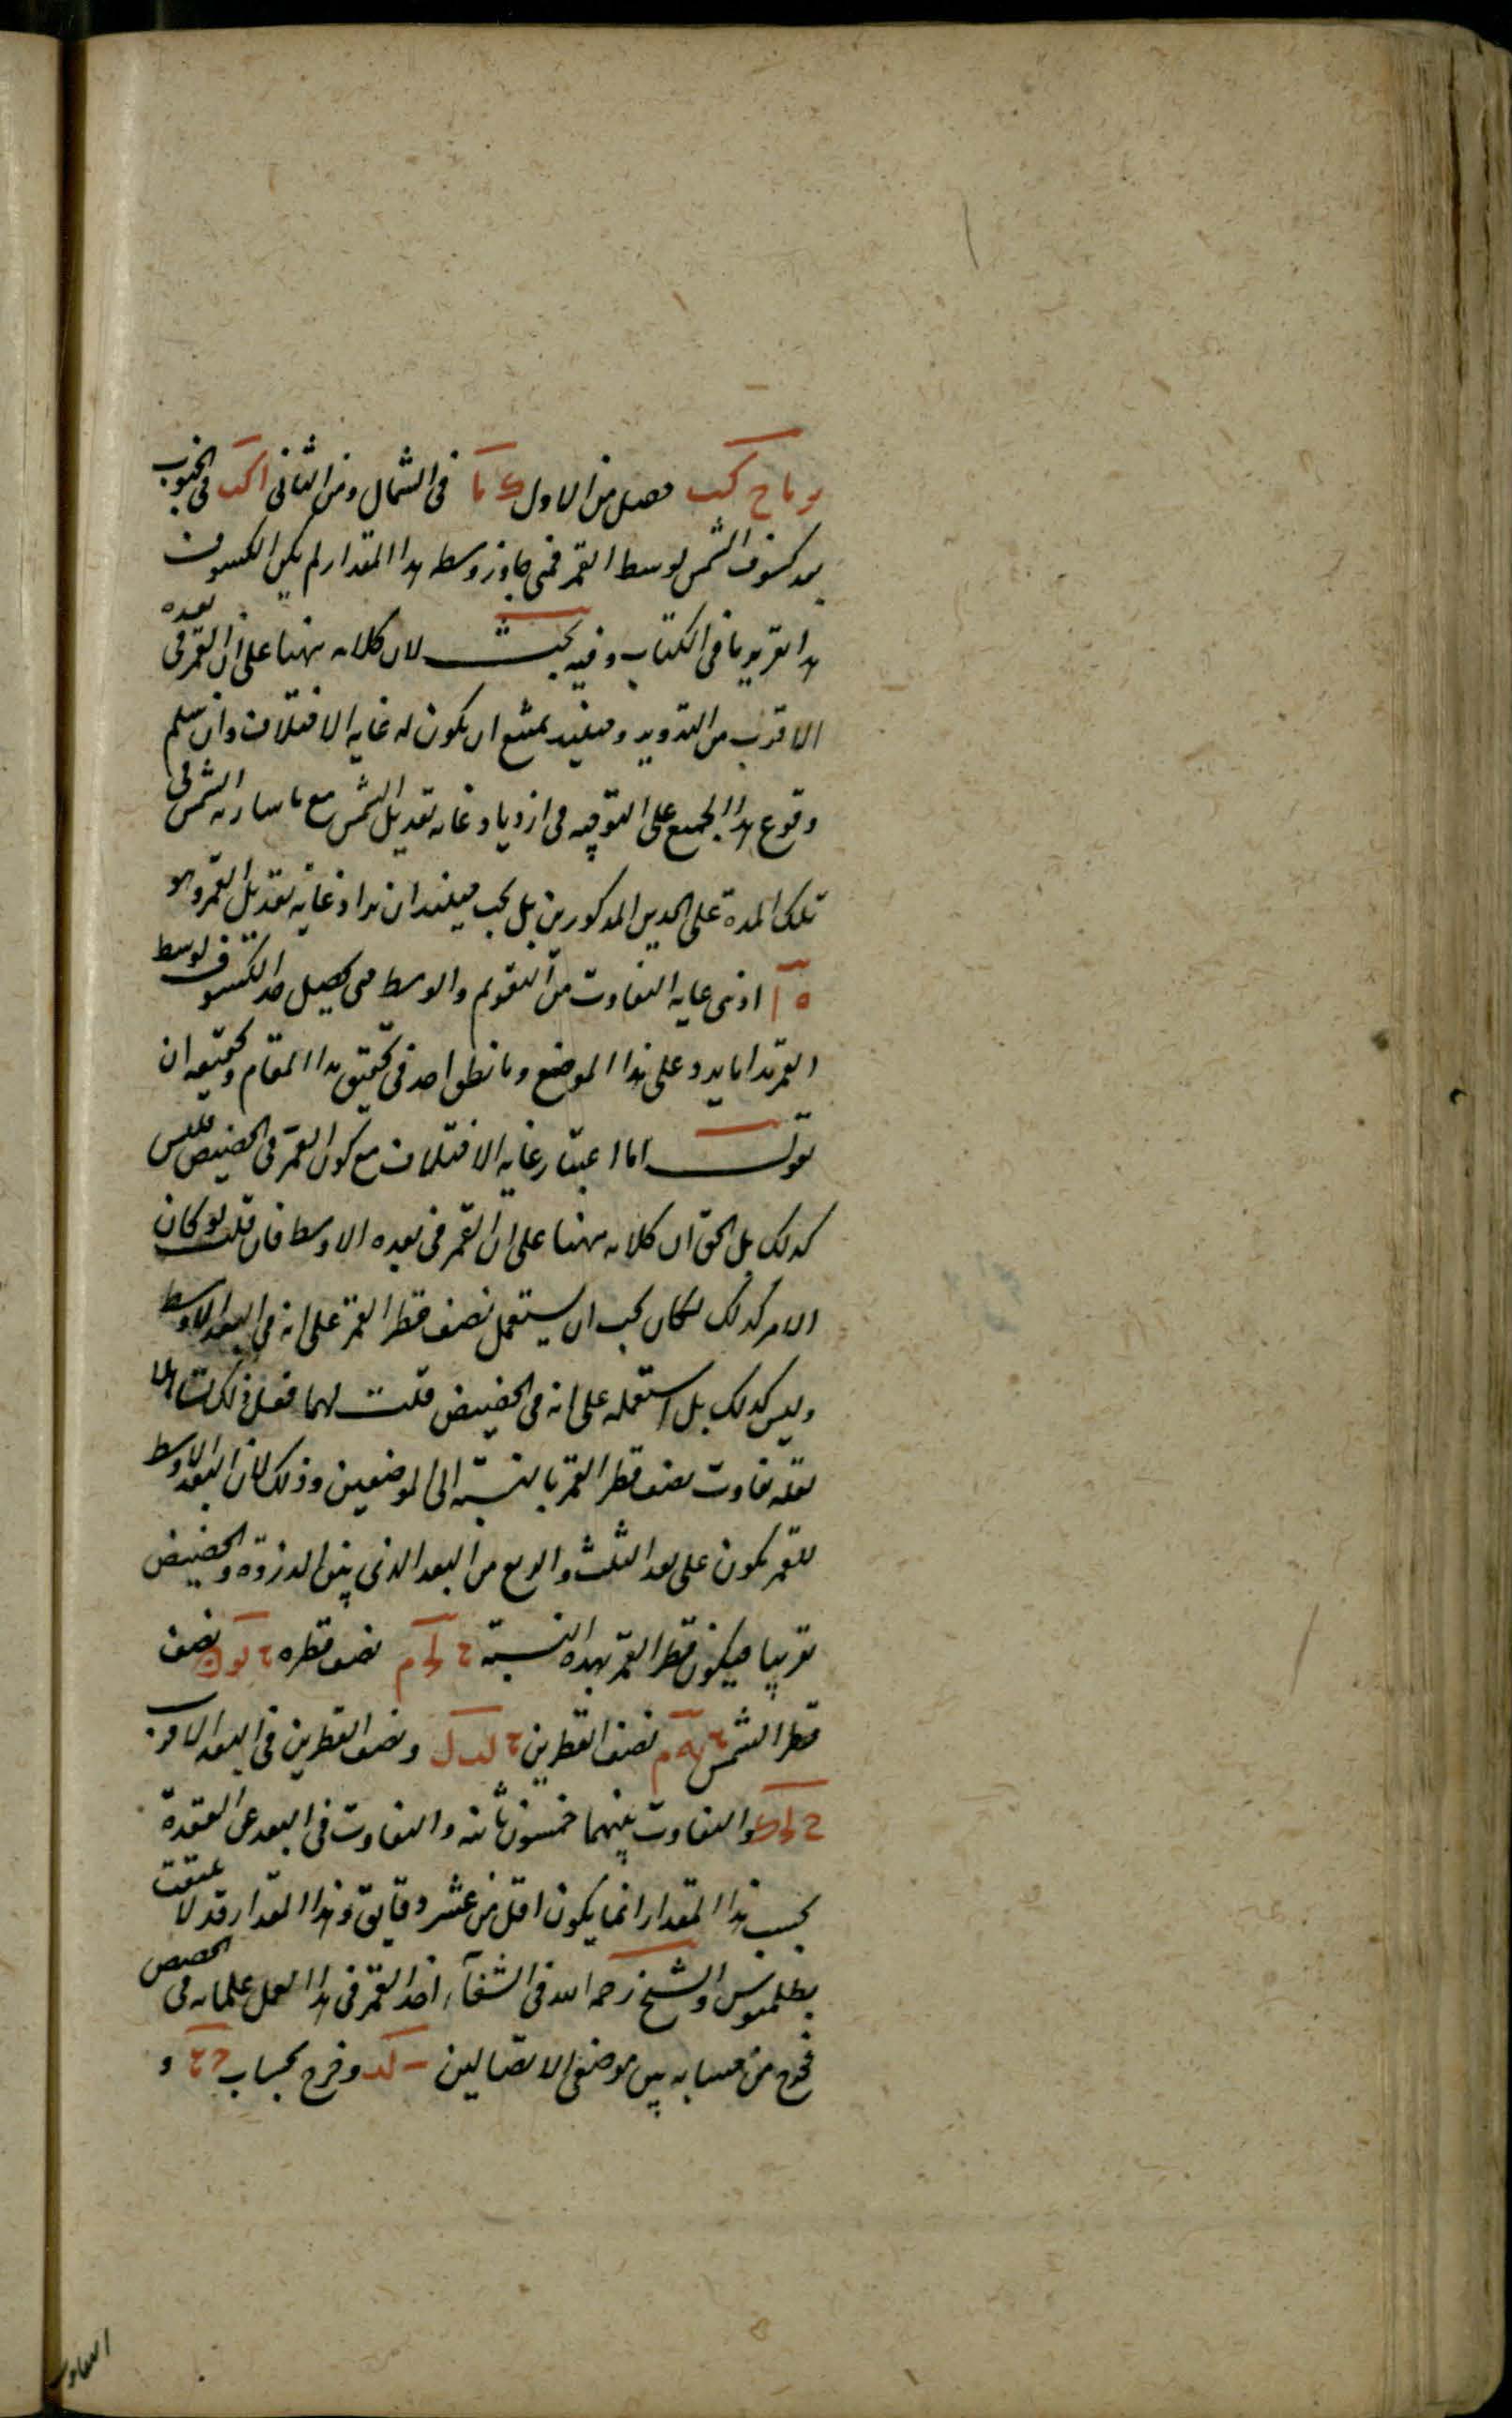 و ما ح كب حصل من الاول ك ما فى الشمال ومن الثانى ا كب فى الجنوب
بعد كسوف الشمس لوسط القمر فمتى جاوز وسطه هذا المقدار لم يكن الكسوف
هذا تقرير ما فى الكتاب وفيه بحث لان كلامه ههنا على ان القمر فى بعده
الاقرب من التدوير وحينئذ يمتنع ان يكون له غاية الاختلاف وان سلم
وقوع هذا الجميع على التوجيه فى ازدياد غاية تعديل الشمس مع ما سارته الشمس فى
تلك المدة على الحدين المذكورين بل يجب حينئذ ان يزاد غاية تعديل القمر وهو
ه ا اذ هى غاية التفاوت من التقويم والوسط حتى يحصل حد الكسوف لوسط
القمر هذا ما يرد على هذا الموضع وما نطق احد فى تحقيق هذا المقام وتحقيقه ان
نقول اما اعتبار غاية الاختلاف مع كون القمر فى الحضيض فليس
كذلك بل الحق ان كلامه ههنا على ان القمر فى بعده الاوسط فان قلت لو كان
الامر كذلك لكان يجب ان يستعمل نصف قطر القمر على انه فى البعد الاوسط
وليس كذلك بل استعمله على انه فى الحضيض قلت انما فعل ذلك تساهلا
لقلة تفاوت نصف قطر القمر بالنسبة الى الموضعين وذلك لان البعد الاوسط
للقمر يكون على بعد الثلث والربع من البعد الذى بين الذروة والحضيض
تقريبا فيكون قطر القمر بهذه النسبة نصف قطره نصف
قطر الشمس نصف القطرين ونصف القطرين فى البعد الاقرب
والتفاوت بينهما خمسون ثانية والتفاوت فى البعد عن العقدة
بحسب هذا المقدار انما يكون اقل من عشر دقايق وهذا المقدار قد لا يلتفت
بطلميوس والشيخ رحمه الله فى الشفآء اخذ القمر فى هذا العمل على انه فى الحضيض
فخرج من حسابه بين موضعى الاتصالين كد وخرج بحساب و
التفاوت